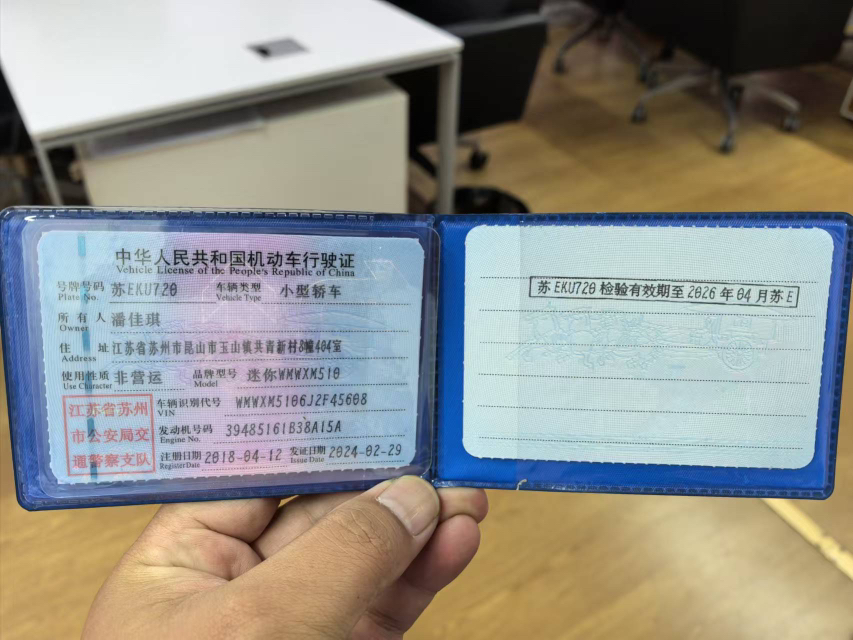 中华人民共和国机动车行驶证
Vehicle License of the People's Republic of China
号牌号码 苏EKU720 车辆类型 小型轿车
Plate No. Vehicle Type
所有人 潘佳琪
Owner
住址 江苏省苏州市昆山市玉山镇共青新村8幢404室
Address
使用性质 非营运 品牌型号 迷你WMWXM510
Use Character Model
江苏省苏州
市公安局交
通警察支队
车辆识别代号 WMWXM5106J2F45608
VIN
发动机号码 39485161B38A15A
Engine No.
注册日期 2018-04-12 发证日期 2024-02-29
Register Date Issue Date
苏EKU720 检验有效期至 2026年04月苏E